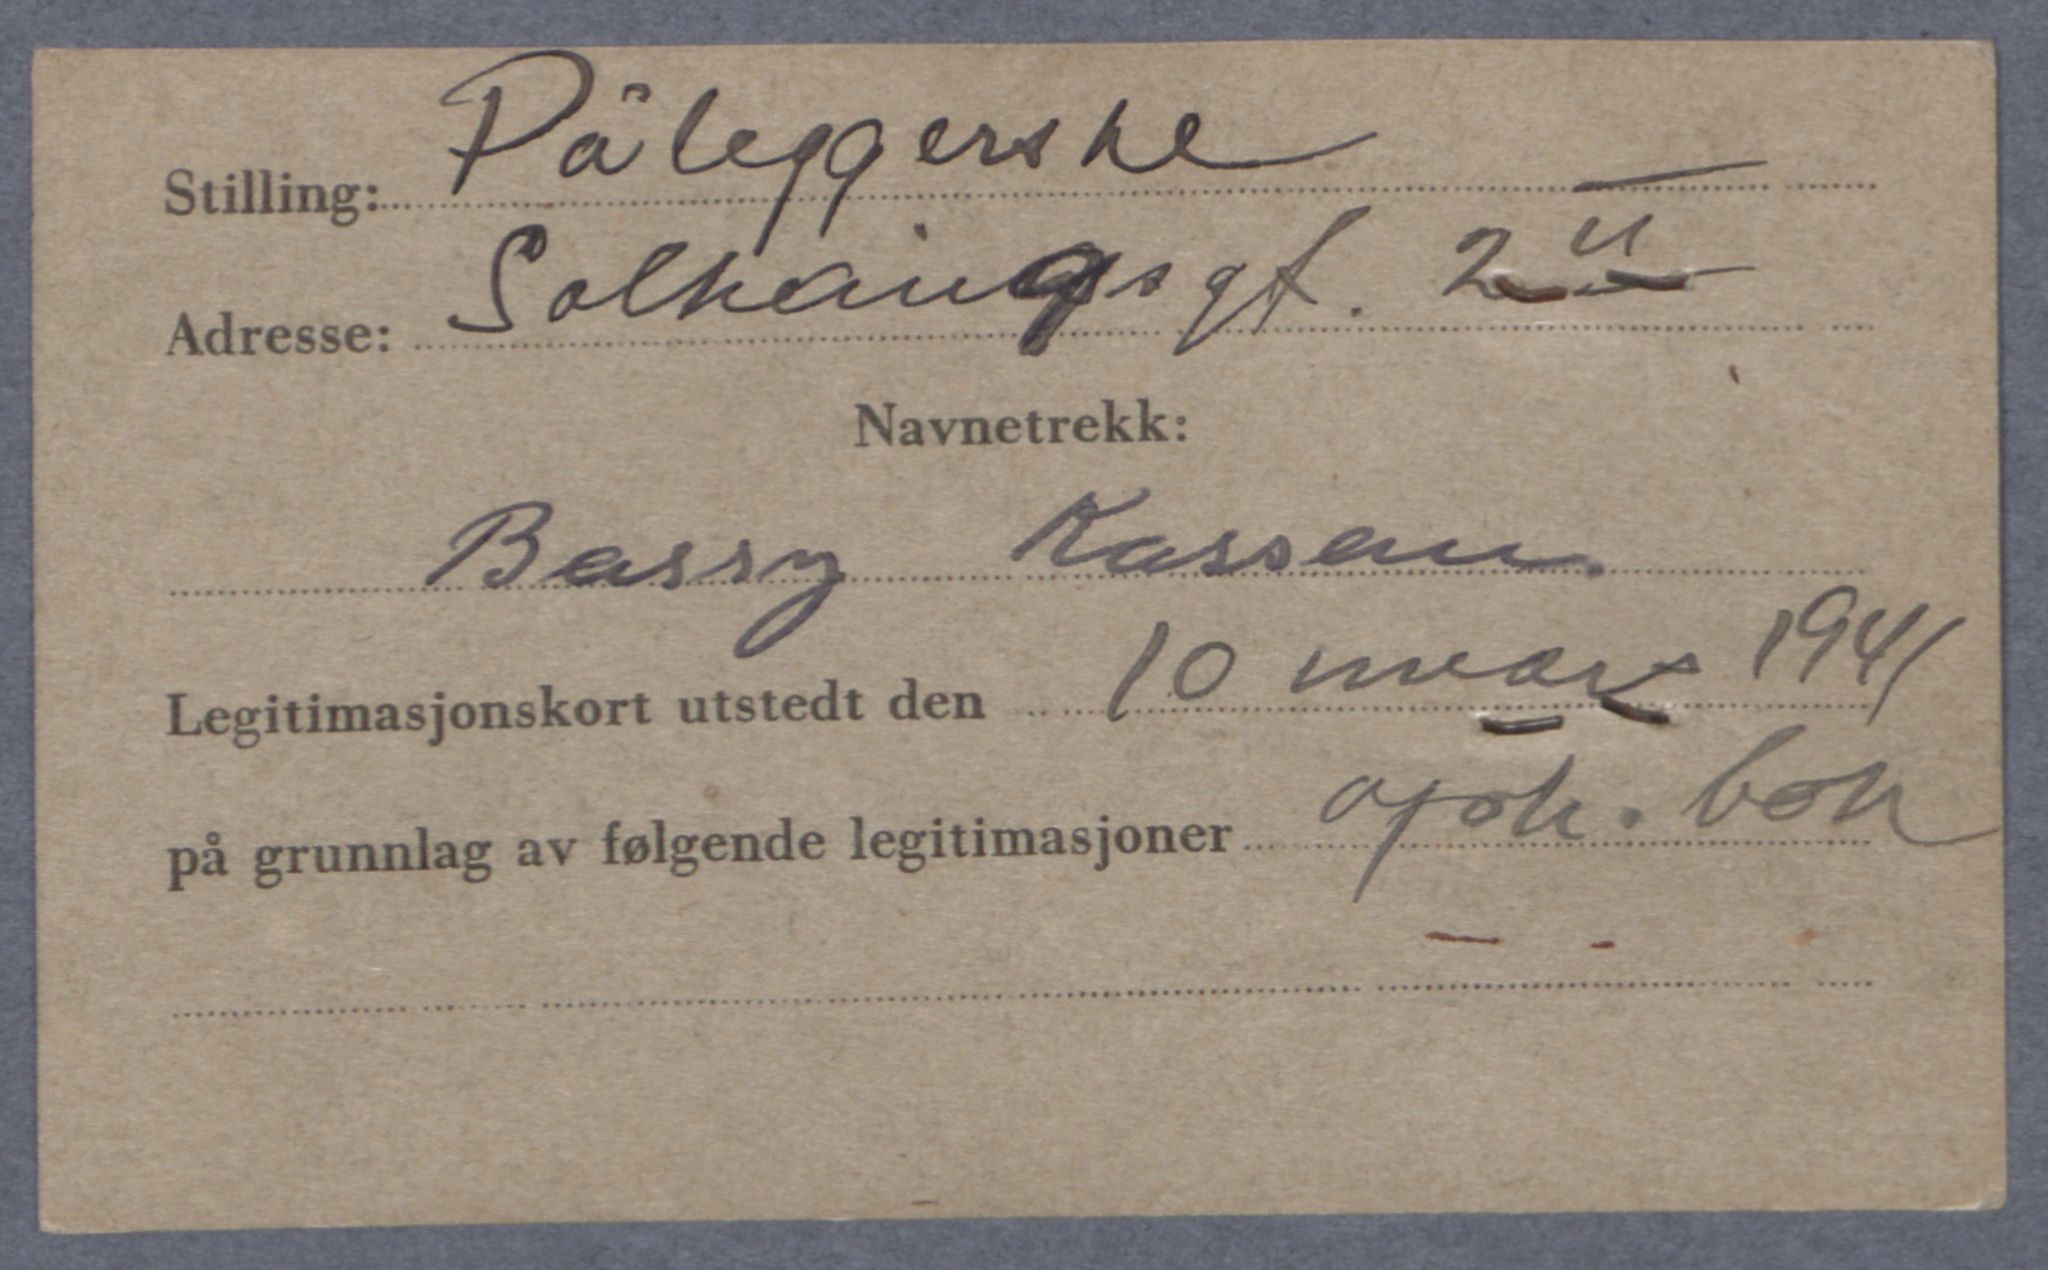 Stilling: Påleggerske
Adresse: Solhaugsgt. 2 II
Navnetrekk:
Bessy Kassan.
Legitimasjonskort utstedt den 10 mars 1941
på grunnlag av følgende legitimasjoner opsk. bok